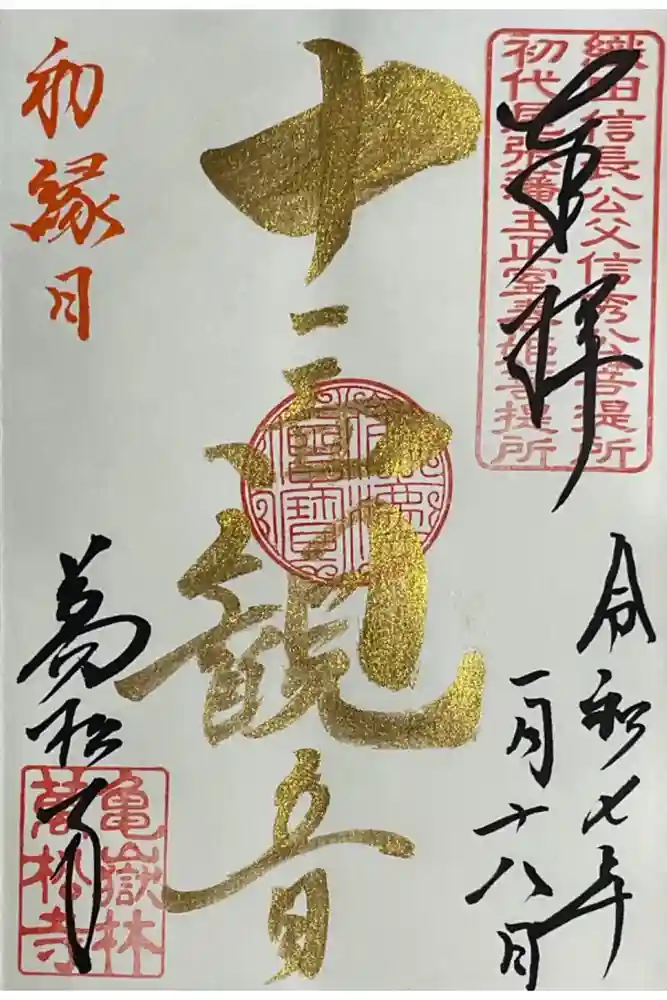 奉拝
織田信長公父信秀公菩提所
初代尾張藩主正室春姫菩提所
令和七年
一月十八日
十一面観音
佛法僧寶
初縁日
萬松寺
亀嶽林
萬松寺